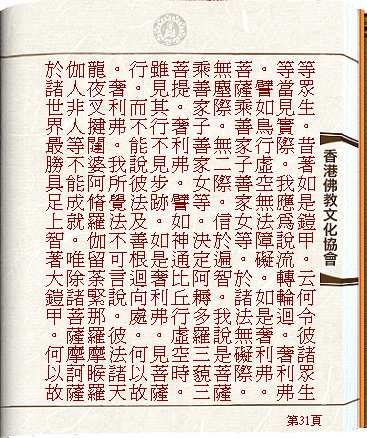 等眾生。昔著如是鎧甲。云何令彼諸眾生
等當見實際。我應爲說流轉輪迴。奢利弗
。譬如鳥行虛空無法障礙。如是奢利弗。
菩薩乘善家子善家女等。於諸法無礙際。
無塵際。無二際。信於遍智。我說是菩薩
乘善家子善家女等。決定阿耨多羅三藐三
菩提。奢利弗。譬如神通比丘行虛空時。
雖見其行不見步跡。如是奢利弗。見菩薩
行。而不能說彼法及善根迴向處。何以故
。奢利弗。我所覺法不可言說。彼法諸天
龍夜叉揵闥婆阿脩羅伽留荼緊那羅摩睺羅
伽人非人等不能成就。唯除諸菩薩摩訶薩
於諸世界最勝具足上智著大鎧甲。何以故
香港佛教文化協會
第31頁